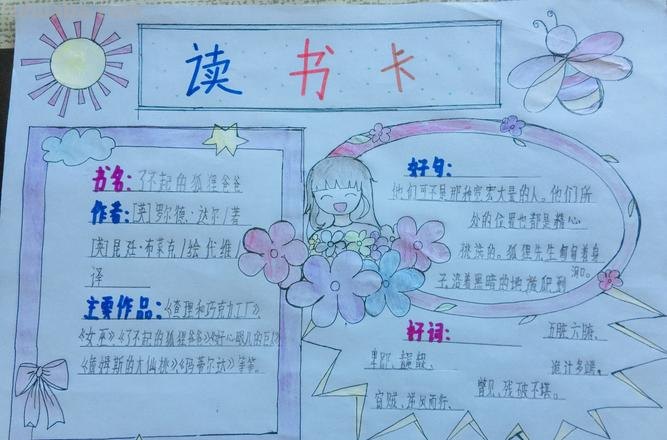 读书卡
书名:了不起的狐狸爸爸
作者:[英]罗尔德·达尔/著
[英]昆廷·布莱克/绘 代维/
译
主要作品:《查理和巧克力工厂》、
《女巫》《了不起的狐狸爸爸》《好心眼儿的巨人》
《詹姆斯的大仙桃》《玛蒂尔达》等等。
好句:
他们可不是那种宽宏大量的人。他们所
处的位置也都是精心
挑选的。狐狸先生匍匐着身
子,沿着黑暗的地道爬到
洞口。
好词:
五脏六腑、
卑鄙、
诡计多端、
瞥见、残破不堪。
盗贼、逆风而行、